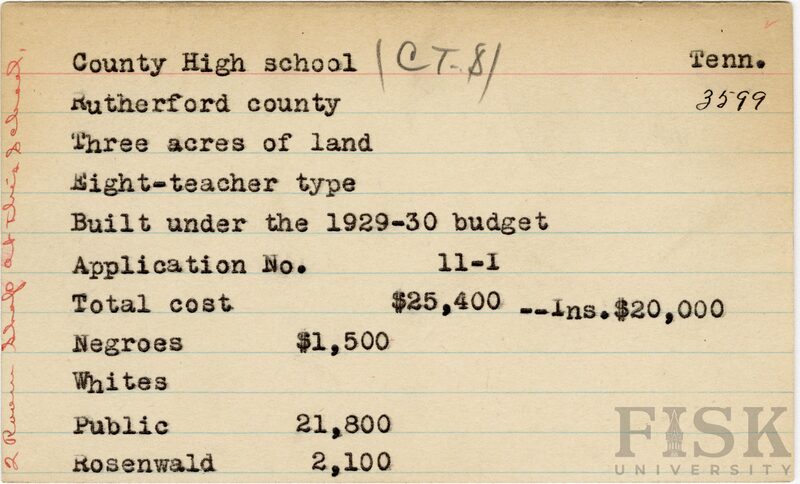 County High school (CT-8) Tenn.
Rutherford county 3599
Three acres of land
Eight-teacher type
Built under the 1929-30 budget
Application No. 11-I
Total cost $25,400 --Ins.$20,000
Negroes $1,500
Whites
Public 21,800
Rosenwald 2,100
2 Room Shop at this School.
FISK
UNIVERSITY